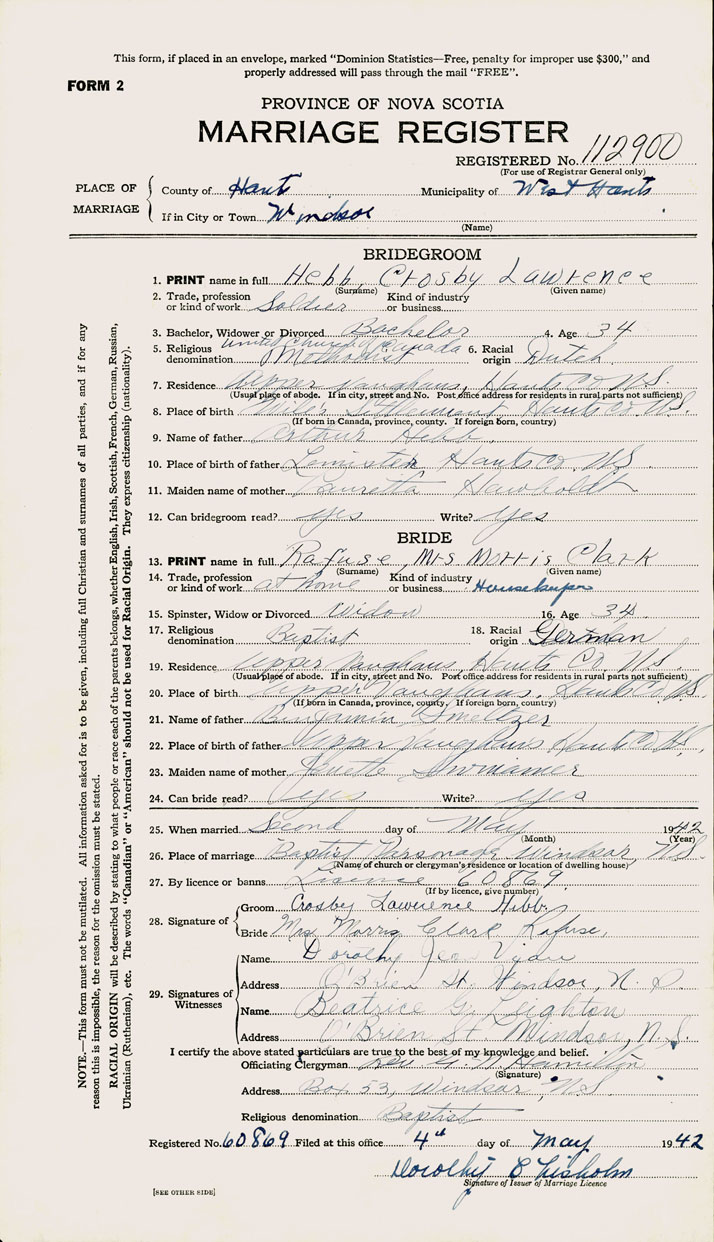 This form, if placed in an envelope, marked "Dominion Statistics—Free, penalty for improper use $300," and
properly addressed will pass through the mail "FREE".
FORM 2
PROVINCE OF NOVA SCOTIA
MARRIAGE REGISTER
REGISTERED No. 112900
(For use of Registrar General only)
PLACE OF MARRIAGE
County of Hants Municipality of West Hants
If in City or Town Windsor
(Name)
BRIDEGROOM
1. PRINT name in full Hebb, Crosby Lawrence
(Surname) (Given name)
2. Trade, profession or kind of work Soldier Kind of industry or business
3. Bachelor, Widower or Divorced Bachelor 4. Age 34
5. Religious denomination United Church of Canada Methodist 6. Racial origin Dutch
7. Residence Upper Vaughans, Hants Co N.S.
(Usual place of abode. If in city, street and No. Post office address for residents in rural parts not sufficient)
8. Place of birth Hants Co. N.S.
(If born in Canada, province, county. If foreign born, country)
9. Name of father Arthur Hebb
10. Place of birth of father Hants Co N.S.
11. Maiden name of mother
12. Can bridegroom read? yes Write? yes
BRIDE
13. PRINT name in full Rafuse, Mrs Morris Clark
(Surname) (Given name)
14. Trade, profession or kind of work at home Kind of industry or business Housekeeper
15. Spinster, Widow or Divorced Widow 16. Age 34
17. Religious denomination Baptist 18. Racial origin German
19. Residence Upper Vaughans, Hants Co. N.S.
(Usual place of abode. If in city, street and No. Post office address for residents in rural parts not sufficient)
20. Place of birth Upper Vaughans, Hants Co N.S.
(If born in Canada, province, county, If foreign born, country)
21. Name of father Benjamin Smeltzer
22. Place of birth of father Upper Vaughans Hants Co N.S.
23. Maiden name of mother
24. Can bride read? yes Write? yes
25. When married Second day of May 1942
(Month) (Year)
26. Place of marriage Baptist Parsonage Windsor, N.S.
(Name of church or clergyman's residence or location of dwelling house)
27. By licence or banns Lisence 60869
(If by licence, give number)
28. Signature of
Groom Crosby Lawerence Hebb
Bride Mrs Morris Clark Rafuse,
29. Signatures of Witnesses
Name Dorothy Jean
Address O'Brien St. Windsor, N.S.
Name Beatrice G. Leighton
Address O'Brien St. Windsor, N.S.
I certify the above stated particulars are true to the best of my knowledge and belief.
Officiating Clergyman Rev G. N. Hamilton
(Signature)
Address Box 53, Windsor, N.S.
Religious denomination Baptist
Registered No. 60869 Filed at this office 4th day of May 1942
Dorothy Chisholm
Signature of Issuer of Marriage Licence
[SEE OTHER SIDE]
NOTE.—This form must not be mutilated. All information asked for is to be given, including full Christian and surnames of all parties, and if for any
reason this is impossible, the reason for the omission must be stated.
RACIAL ORIGIN will be described by stating to what people or race each of the parents belongs, whether English, Irish, Scottish, French, German, Russian,
Ukrainian (Ruthenian), etc. The words "Canadian" or "American" should not be used for Racial Origin. They express citizenship (nationality).